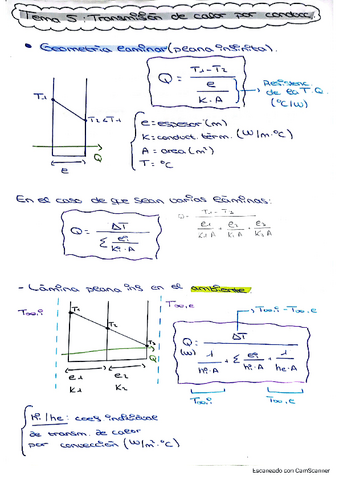 Tema 5: Transmisión de calor por conducc.
• Geometría laminar (plana infinita).
Q = T1 - T2 / e / K·A
Resistenc. de la T Q. (°C/W)
T1
T2 < T1
Q
e
e = espesor (m)
K = conduct. térm. (W/m·°C)
A = area (m²)
T = °C
En el caso de que sean varias láminas:
Q = ΔT / Σ ei / Ki·A
Q = T1 - T2 / e1 / K1·A + e2 / K2·A + e3 / K3·A
- Lámina plana en el ambiente
T∞,i
T∞,e
T∞,i - T∞,e
T1
T2
T3
Q
e1 e2
K1 K2
Q (W) = ΔT / 1 / hi·A + Σ ei / Ki·A + 1 / he·A
T∞,i
T∞,e
hi / he: coef. individual
de transm. de calor
por convección (W/m²·°C)
Escaneado con CamScanner